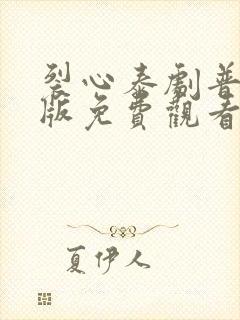 裂心泰劇普
版免費觀看
夏伊人